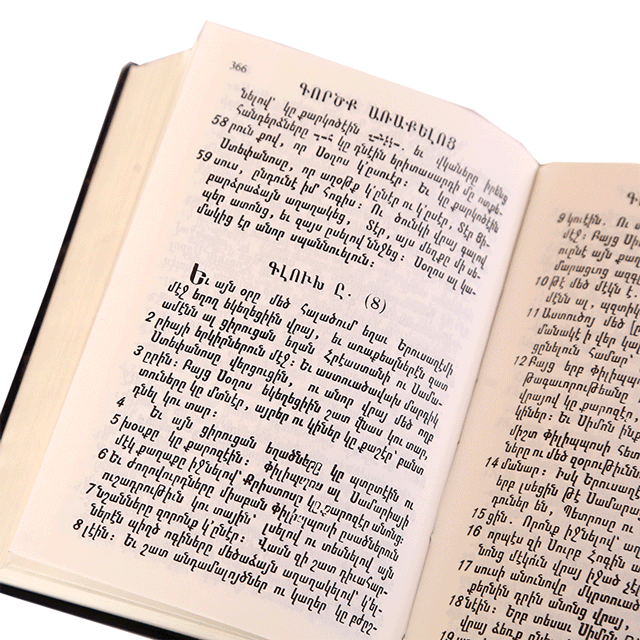 366
ԳՈՐԾՔ ԱՌԱՔԵԼՈՑ
նելով՝ կը քարկոծէին եւ վկաները իրենց
Հանդերձները կը դնէին երիտասարդի մը ոտքե-
58 րուն քով, որ Սօղոս կ՚ըսուէր։ Եւ կը քարկոծէին
Ստեփանոսը, որ աղօթք կ՚ընէր ու կ՚ըսէր, Տէր Յի-
59 սուս, ընդունէ իմ հոգիս։ Ու ծունկի վրայ գալով
բարձրաձայն աղաղակեց, Տէր, այս մեղքը մի սե-
պեր ատոնց, եւ զայս ըսելով ննջեց։ Սօղոս ալ կա-
մակից էր անոր սպաննուելուն։
ԳԼՈՒԽ Ը. (8)
Եւ այն օրը մեծ հալածում եղաւ Երուսաղէմի
մէջ եղող եկեղեցիին վրայ, եւ առաքեալներէն զատ
ամէնն ալ ցիրուցան եղան Հրէաստանի ու Սամա-
2 րիայի երկիրներուն մէջ։ Եւ աստուածավախ մարդիկ
Ստեփանոսը վերցուցին, ու անոր վրայ մեծ ողբ
3 ըրին։ Բայց Սօղոս եկեղեցիին շատ վնաս կու տար.
տուները կը մտնէր, այրեր ու կիներ կը քաշէր՝ բան-
տը դնել կու տար։
4 Եւ այն ցիրուցան եղածները կը պտըտէին ու
5 խօսքը կը քարոզէին։ Փիլիպպոս ալ Սամարիայի
մէկ քաղաքը իջնելով՝ Քրիստոսը կը քարոզէր անոնց։
6 Եւ ժողովուրդները միաբան Փիլիպպոսի ըսածներուն
ուշադրութիւն կու տային՝ լսելով ու տեսնելով այն
7 նշանները զորոնք կ՚ընէր։ Վասն զի շատ դիւահար-
ներէն պիղծ ոգիները մեծաձայն աղաղակելով՝ կ՚ել-
8 լէին։ Եւ շատ անդամալոյծներ ու կաղեր կը բժշ-
9 կուէին. Ու
մէջ։ Բայց
ուրնէ այն քաղ
մարացւոց ազգ
10 թէ մեծ մէկն է
մէնն ալ, պզտի
11 Աստուծոյ մեծ
մանակէ ի վեր կախ
ցընելուն համար՝
12 Բայց երբ Փիլի
թագաւորութեանը
վրայով կը քարոզէր
կիներ։ Եւ Սիմոն ինք
միշտ Փիլիպպոսի հետ
ները ու մեծ զօրութիւն
14 մանար։ Իսկ Երուս
երբ լսեցին թէ Սամար
դուներ են, Պետրոսը ու
15 ցին. Որոնք իջնելով աղ
16 որպէս զի Սուրբ Հոգին
նոնց մէկուն վրայ իջած չէ
17 սուսի անունովը մկրտուած
քերնին դրին անոնց վրայ,
18 նէին։ Երբ տեսաւ Սիմոն
վրայ ձեռք